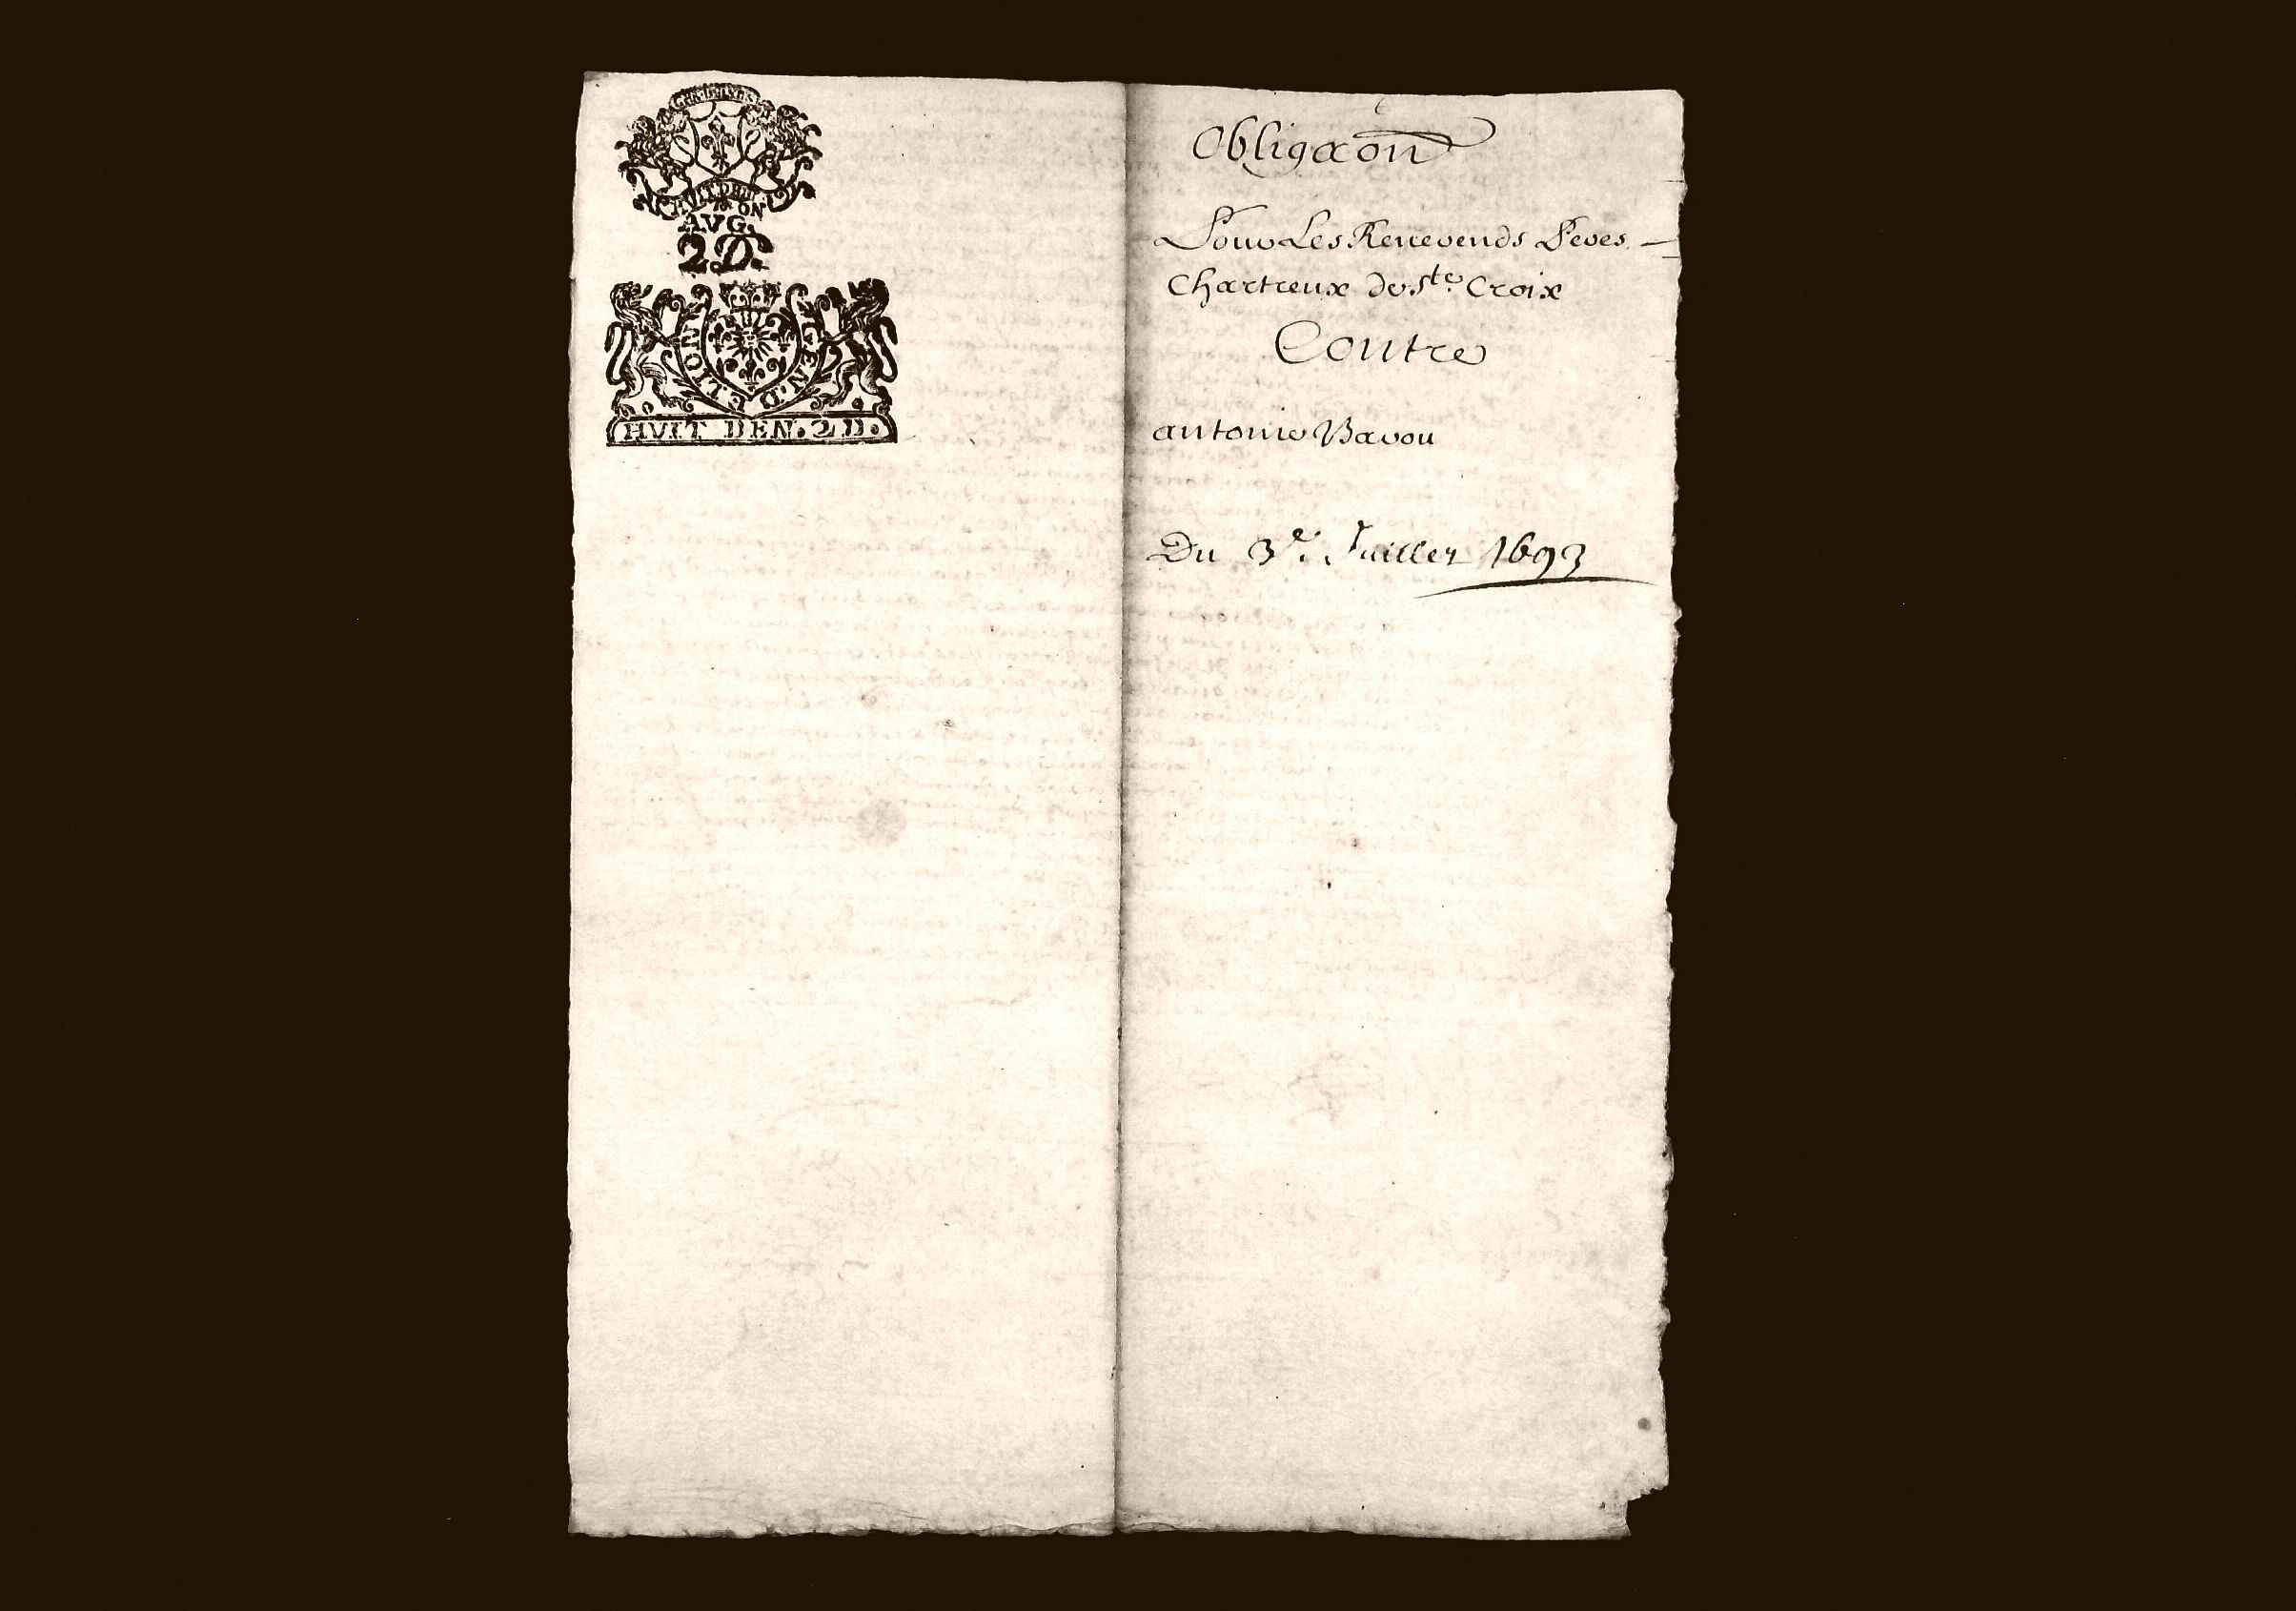 AVG.
2D.
LION
GEN. DE
HVIT DEN. 2D.
Obligaon
Pour Les Reverends Peres
Chartreux de Ste. Croix
Contre
antoine
Du 3e. Juillet 1693